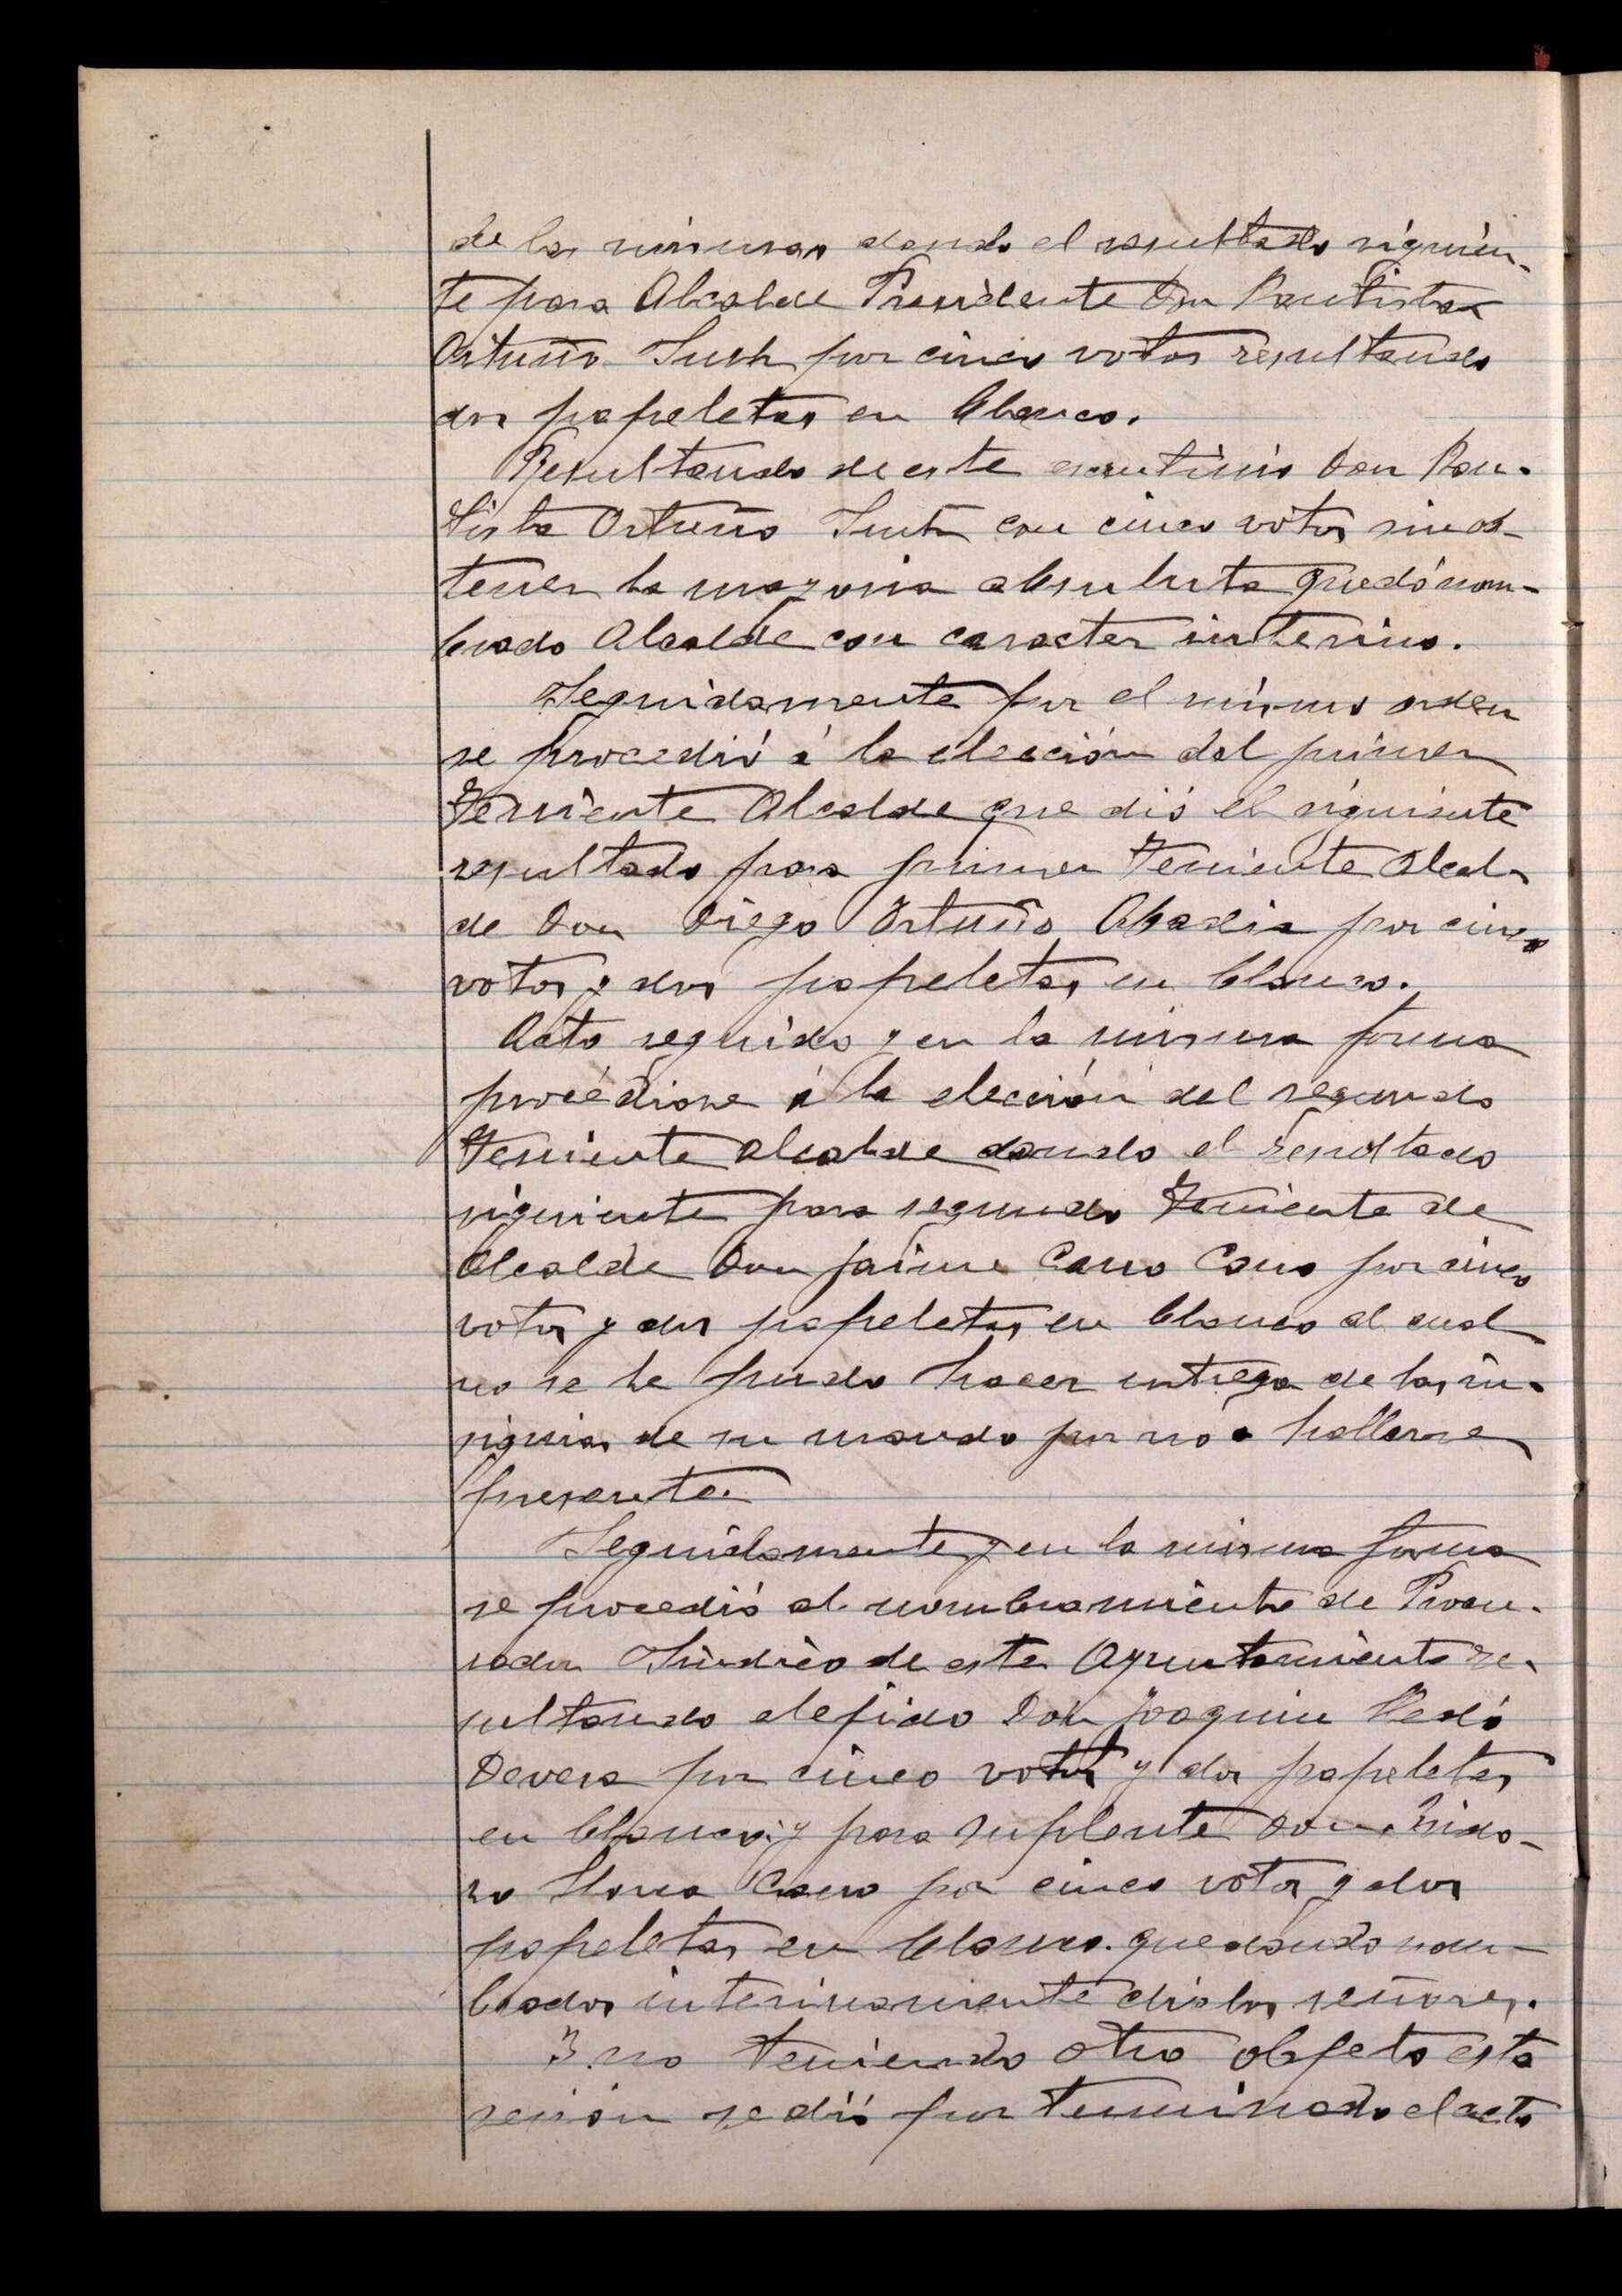 de las mismas dando el resultado siguien-
te para Alcalde Presidente Don Bautista
Ortuño Such por cinco votos resultando
dos papeletas en blanco.
Resultando de este escrutinio Don Bau-
tista Ortuño Such con cinco votos sin ob-
tener la mayoria absoluta quedó nom-
brado Alcalde con caracter interino.
Seguidamente por el mismo orden
se procedió á la elección del primer
Teniente Alcalde que dió el siguiente
resultado para primer Teniente Alcal-
de Don Diego Ortuño Abadia por cinco
votos y dos papeletas en blanco.
Acto seguido y en la misma forma
procédiose á la elección del segundo
Teniente Alcalde dando el resultado
siguiente para segundo Teniente de
Alcalde Don Jaime Cano Cano por cinco
votos y dos papeletas en blanco al cual
no se le pudo hacer entrega de las in-
signias de su mando por nó hallarse
presente.
Seguidamente y en la misma forma
se procedió al nombramiento de Procu-
rador Síndico de este Ayuntamiento re-
sultando elejido Don Joaquin
Devesa por cinco votos y dos papeletas
en blanco; y para suplente Don Isido-
ro Llorca Cano por cinco votos y dos
papeletas en blanco. quedando nom-
brados interinamente dichos señores.
Y no teniendo otro objeto esta
sesión se dió por terminado el acto